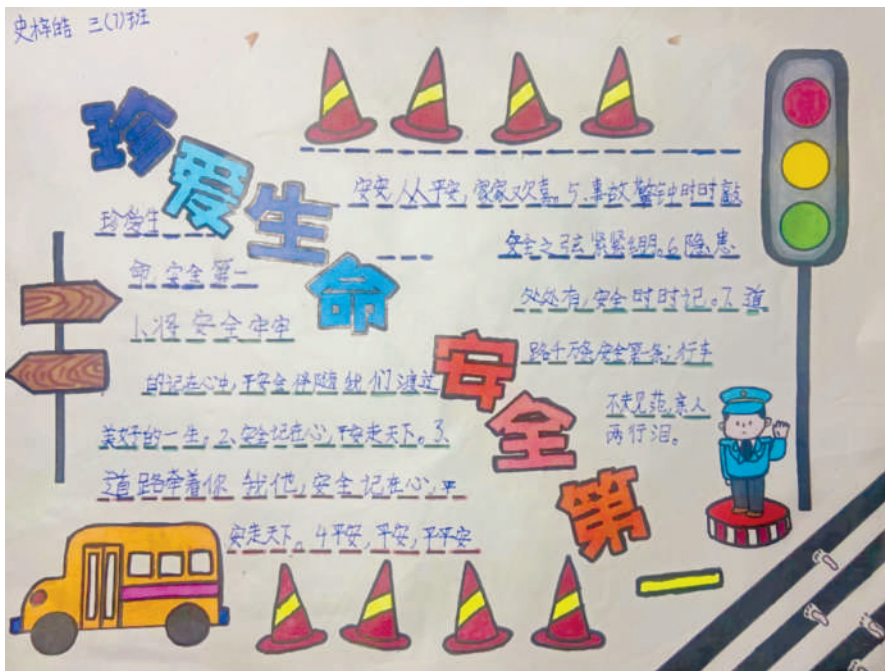 史梓皓 三(7)班
珍爱生命
安全第一
珍爱生
命,安全第一
1、将安全牢牢
的记在心中,平安会伴随我们渡过
美好的一生。2、安全记在心,平安走天下。3、
道路牵着你我他,安全记在心,平
安走天下。4平安,平安,平平安
安安,人人平安,家家欢喜。5、事故警钟时时敲
安全之弦紧紧绷。6、隐患
处处有,安全时时记。7、道
路千万条,安全第一条;行车
不规范,亲人
两行泪。